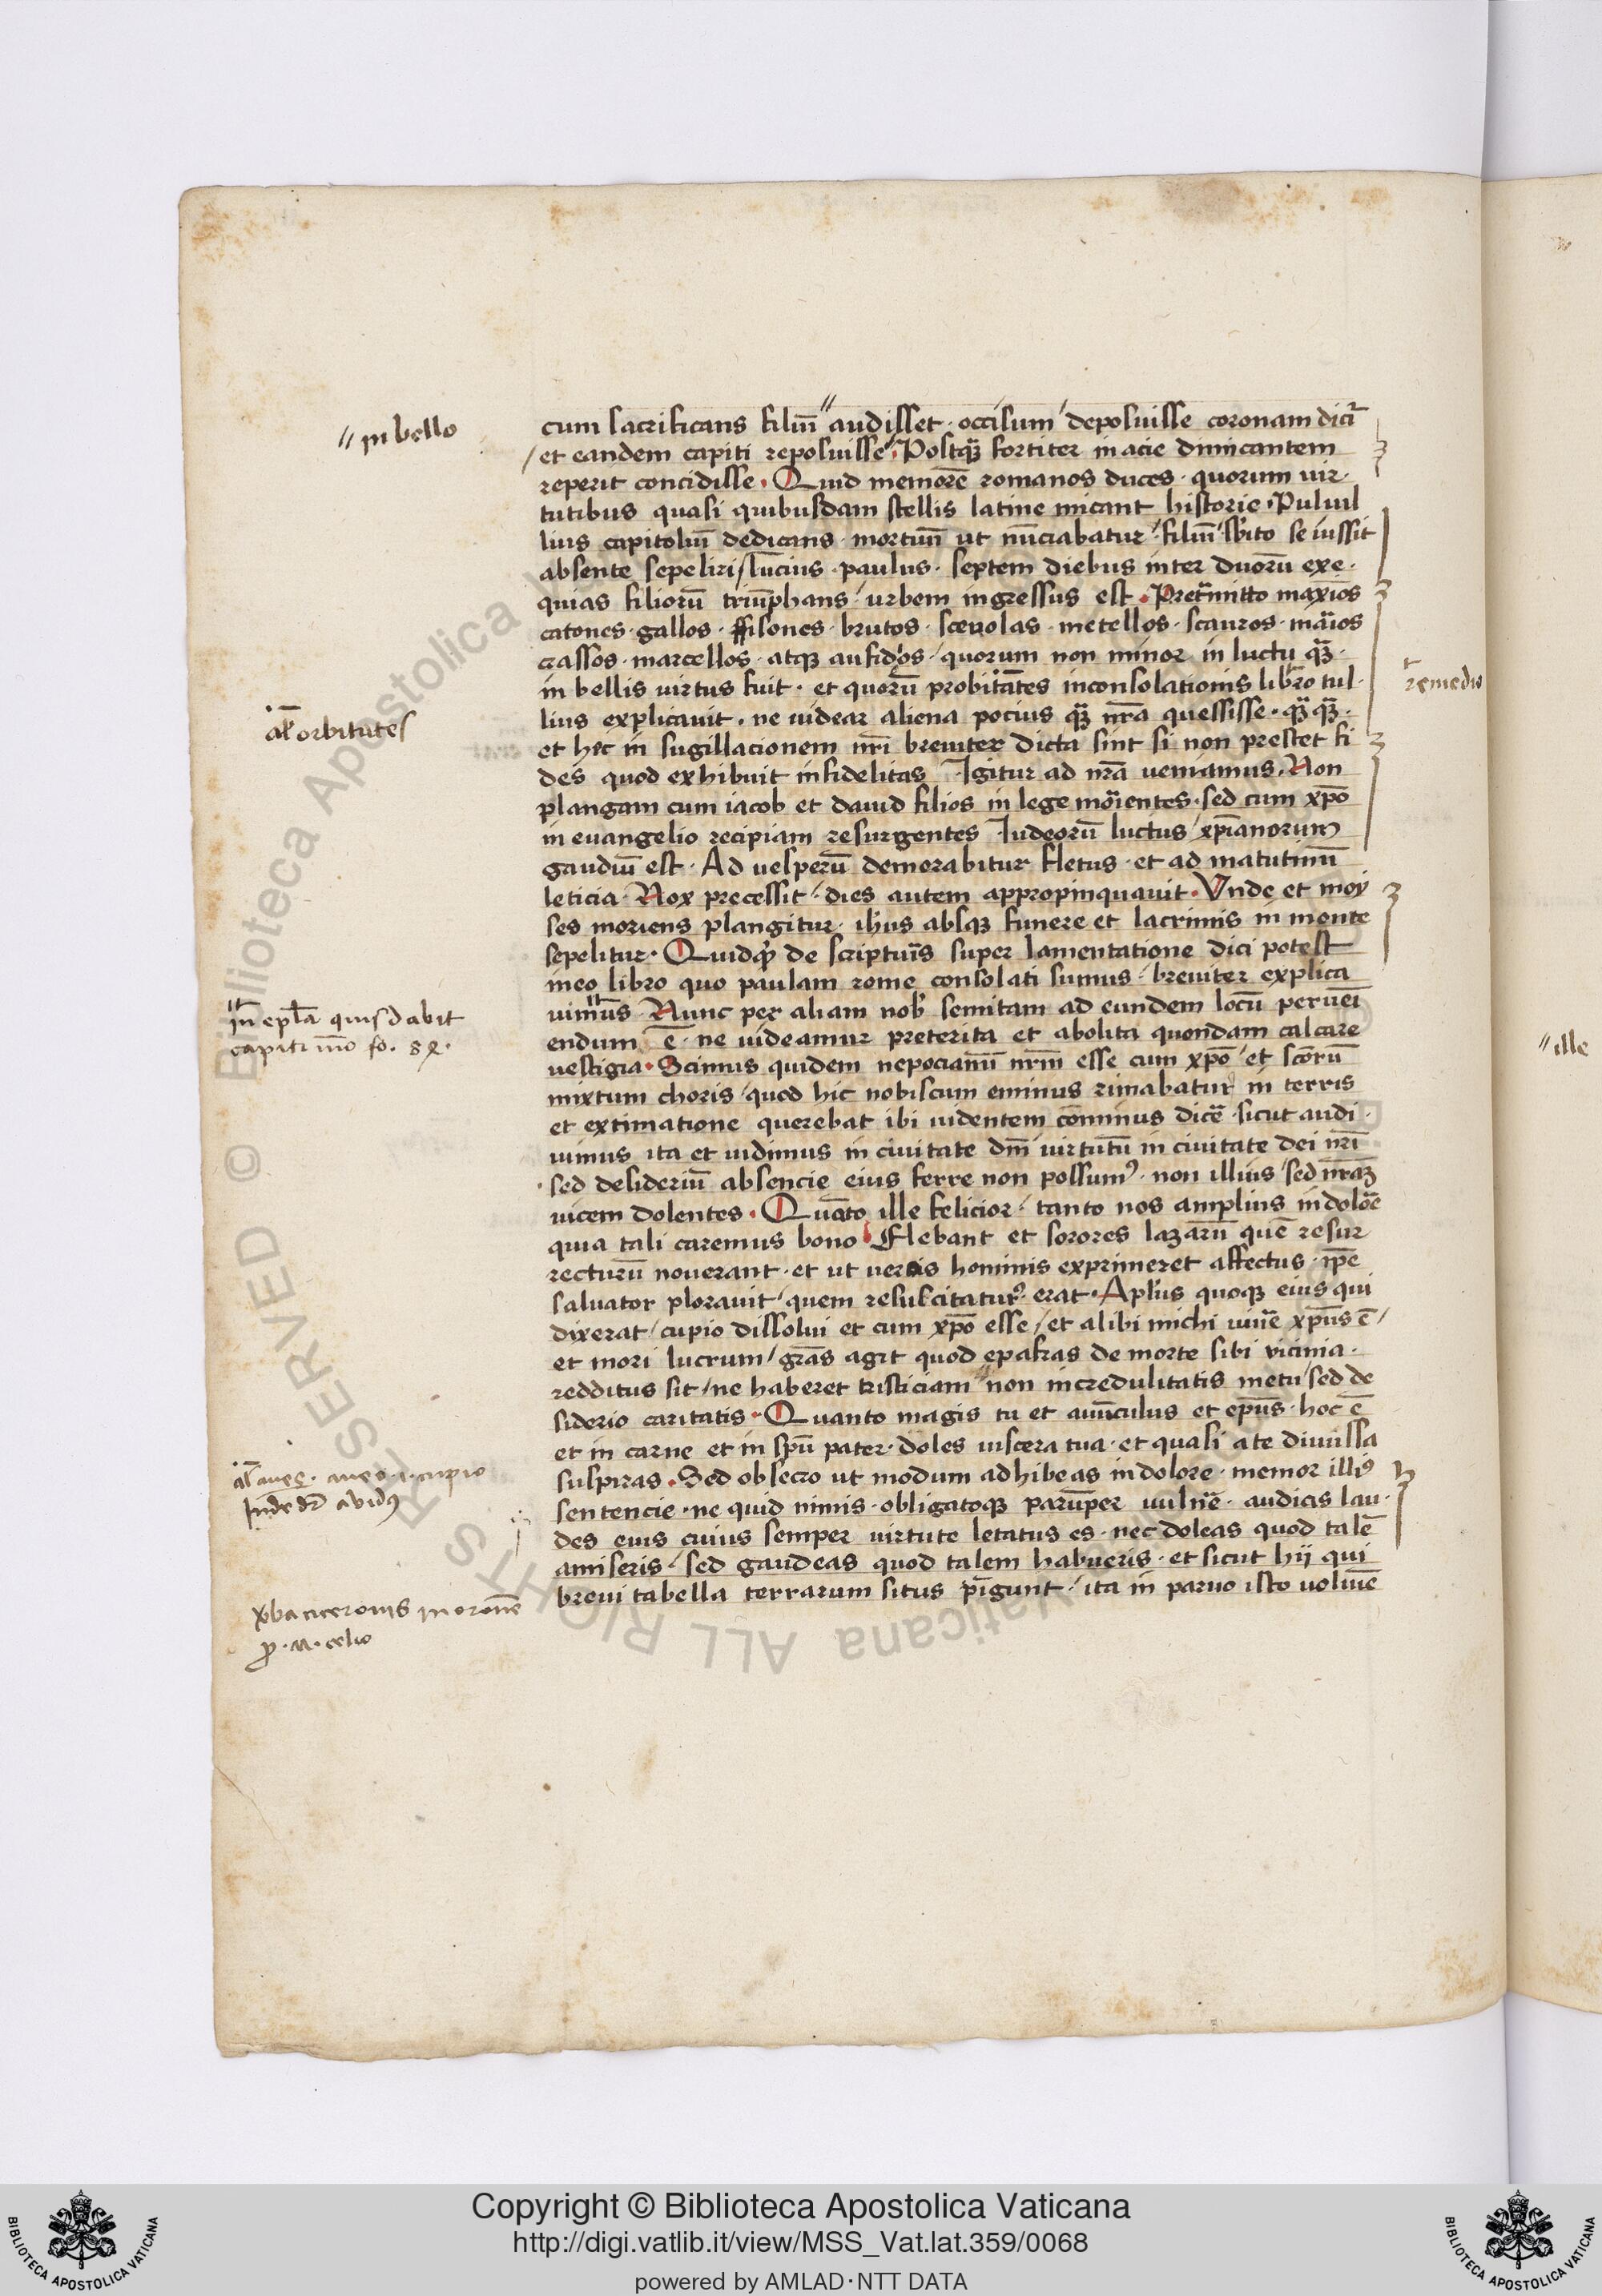 cum sacrificans filiū audisset · occisum deposuisse coronam dicĩ
et eandem capiti reposuisse · Postq̃ fortiter in acie dimicantem
reperit concidisse · Quid memorē romanos duces · quorum uir
tutibus quasi quibusdam stellis latine micant historie · Puluil
lius capitoliū dedicans · mortuū ut nūciabatur / filiū sbito se iussit
absente sepeliri / lucius · paulus · septem diebus inter duorū exe
quias filiorū triūphans / urbem ingressus est · Pretmitto maxīos
catones · gallos · pisones · brutos · sceuolas · metellos · scauros · marios
crassos · marcellos · atqꝫ aufidios / quorum non minor in luctu qꝫ̃
in bellis uirtus fuit · et quorū probitātes in consolationis libro tul
lius explicauit · ne uidear aliena pocius qꝫ̃ nrā quesisse · qꝫ̃qꝫ̃
et hec in sugillacionem nrī breuiter dicta sint si non prestet fi
des quod exhibuit infidelitas Igitur ad nrā ueniamus · Non
plangam cum iacob et dauid filios in lege morientes · sed cum xp̄o
in euangelio recipiam resurgentes Iudeorū luctus / xp̄ianorum
gaudiū est · Ad uesperū demorabitur fletus · et ad matutinū
leticia · Nox precessit / dies autem appropinquauit · Vnde et moy
ses moriens plangitur · ih̄us absqꝫ funere et lacrimis in monte
sepelitur · Quidqͥd de scripturis super lamentatione dici potest
in eo libro quo paulam rome consolati sumus / breuiter explica
uimus · Nunc per aliam nob̄ semitam ad eundem locū perueī
endum ē · ne uideamur preterita et abolita quondam calcare
uestigia · Scimus quidem nepocianū nrm̄ esse cum xp̄o / et scōrū
mixtum choris / quod hic nobiscum eminus rimabatur in terris
et extimatione querebat ibi uidentem cōminus dicē · sicut audi
uimus ita et uidimus in ciuitate dn̄i uirtutū in ciuitate dei nrī
sed desideriū absencie eius ferre non possumꝰ · non illius / sed nraꝫ
uicem dolentes · Quāto ille felicior / tanto nos amplius in dolorē
quia tali caremus bono · Flebant et sorores lazarū quē resur
recturū nouerant · et ut ueros hominis exprimeret affectus · ip̄e
saluator plorauit / quem resuscitaturꝰ erat · Apl̄us quoqꝫ eius qui
dixerat / cupio dissolui et cum xp̄o esse / et alibi michi uiuē xp̄us ē /
et mori lucrum / grās agit quod epafras de morte sibi vicinia
redditus sit / ne haberet tristiciam non incredulitatis metu / sed de
siderio caritatis · Quanto magis tu et auūculus et ep̄us · hoc ē
et in carne et in sp̄u pater · doles uiscera tua · et quasi a te diuulsa
suspiras · Sed obsecro ut modum adhibeas in dolore · memor illiꝰ
sentencie · ne quid nimis · obligatoqꝫ parūper uulnē · audias lau
des eius cuius semper uirtute letatus es · nec doleas quod talē
amiseris / sed gaudeas quod talem habueris · et sicut hij qui
breui tabella terrarum situs pīgunt / ita in paruo isto uolumē
// in bello
al̄ orbitates
remedio
in epl̄a quis dabit
capiti mō fo. 82.
al̄ aues. aueo. i. cupio
Inde dr̄ auidꝰ
v̄ba ciceronis in oronē
ꝓ · M · celio
// ille
© Biblioteca Apostolica Vaticana ALL RIGHTS RESERVED
Copyright © Biblioteca Apostolica Vaticana
http://digi.vatlib.it/view/MSS_Vat.lat.359/0068
powered by AMLAD·NTT DATA
BIBLIOTECA APOSTOLICA VATICANA
BIBLIOTECA APOSTOLICA VATICANA